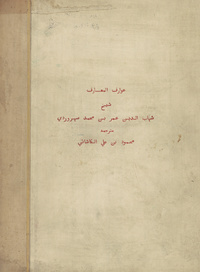 عوارف المعارف
شیخ
شهاب الدین عمر بن محمد سهروردی
مترجمه
محمود بن علی الکاشانی